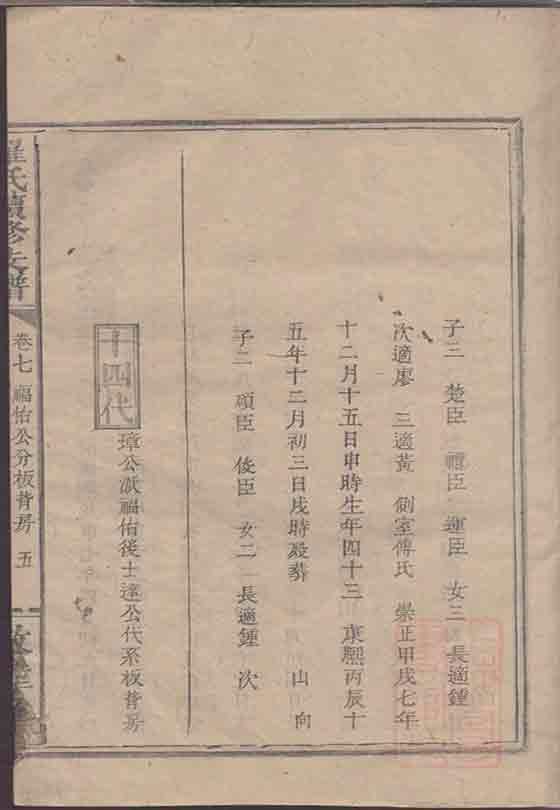 子三 楚臣 禮臣 運臣 女三 長適鍾
次適廖 三適黃 側室傅氏 崇正甲戌七年
十二月十五日申時生年四十三 康熙丙辰十
五年十二月初三日戌時歿葬 山 向
子二 碩臣 俊臣 女二 長適鍾 次
十四代 璋公派福佑後士達公代系板背房
羅氏續修支譜
卷七 福佑公分板背房 五